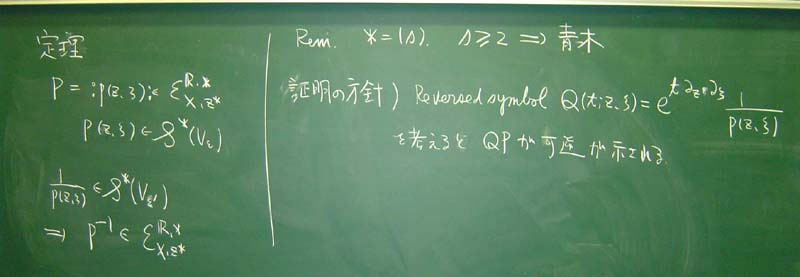 定理
P = :p(z,ξ): ∈ ℰ^{ℝ,*}_{X,z*}
p(z,ξ) ∈ 𝒮^*(V_ε)
1/p(z,ξ) ∈ 𝒮^*(V_ε')
⇒ P^{-1} ∈ ℰ^{ℝ,*}_{X,z*}
Rem. * = (s). s ≥ 2 ⇒ 青木
証明の方針) Reversed symbol Q(t;z,ξ) = e^{t∂_z・∂_ξ} 1/p(z,ξ)
を考えると QPが可逆が示される